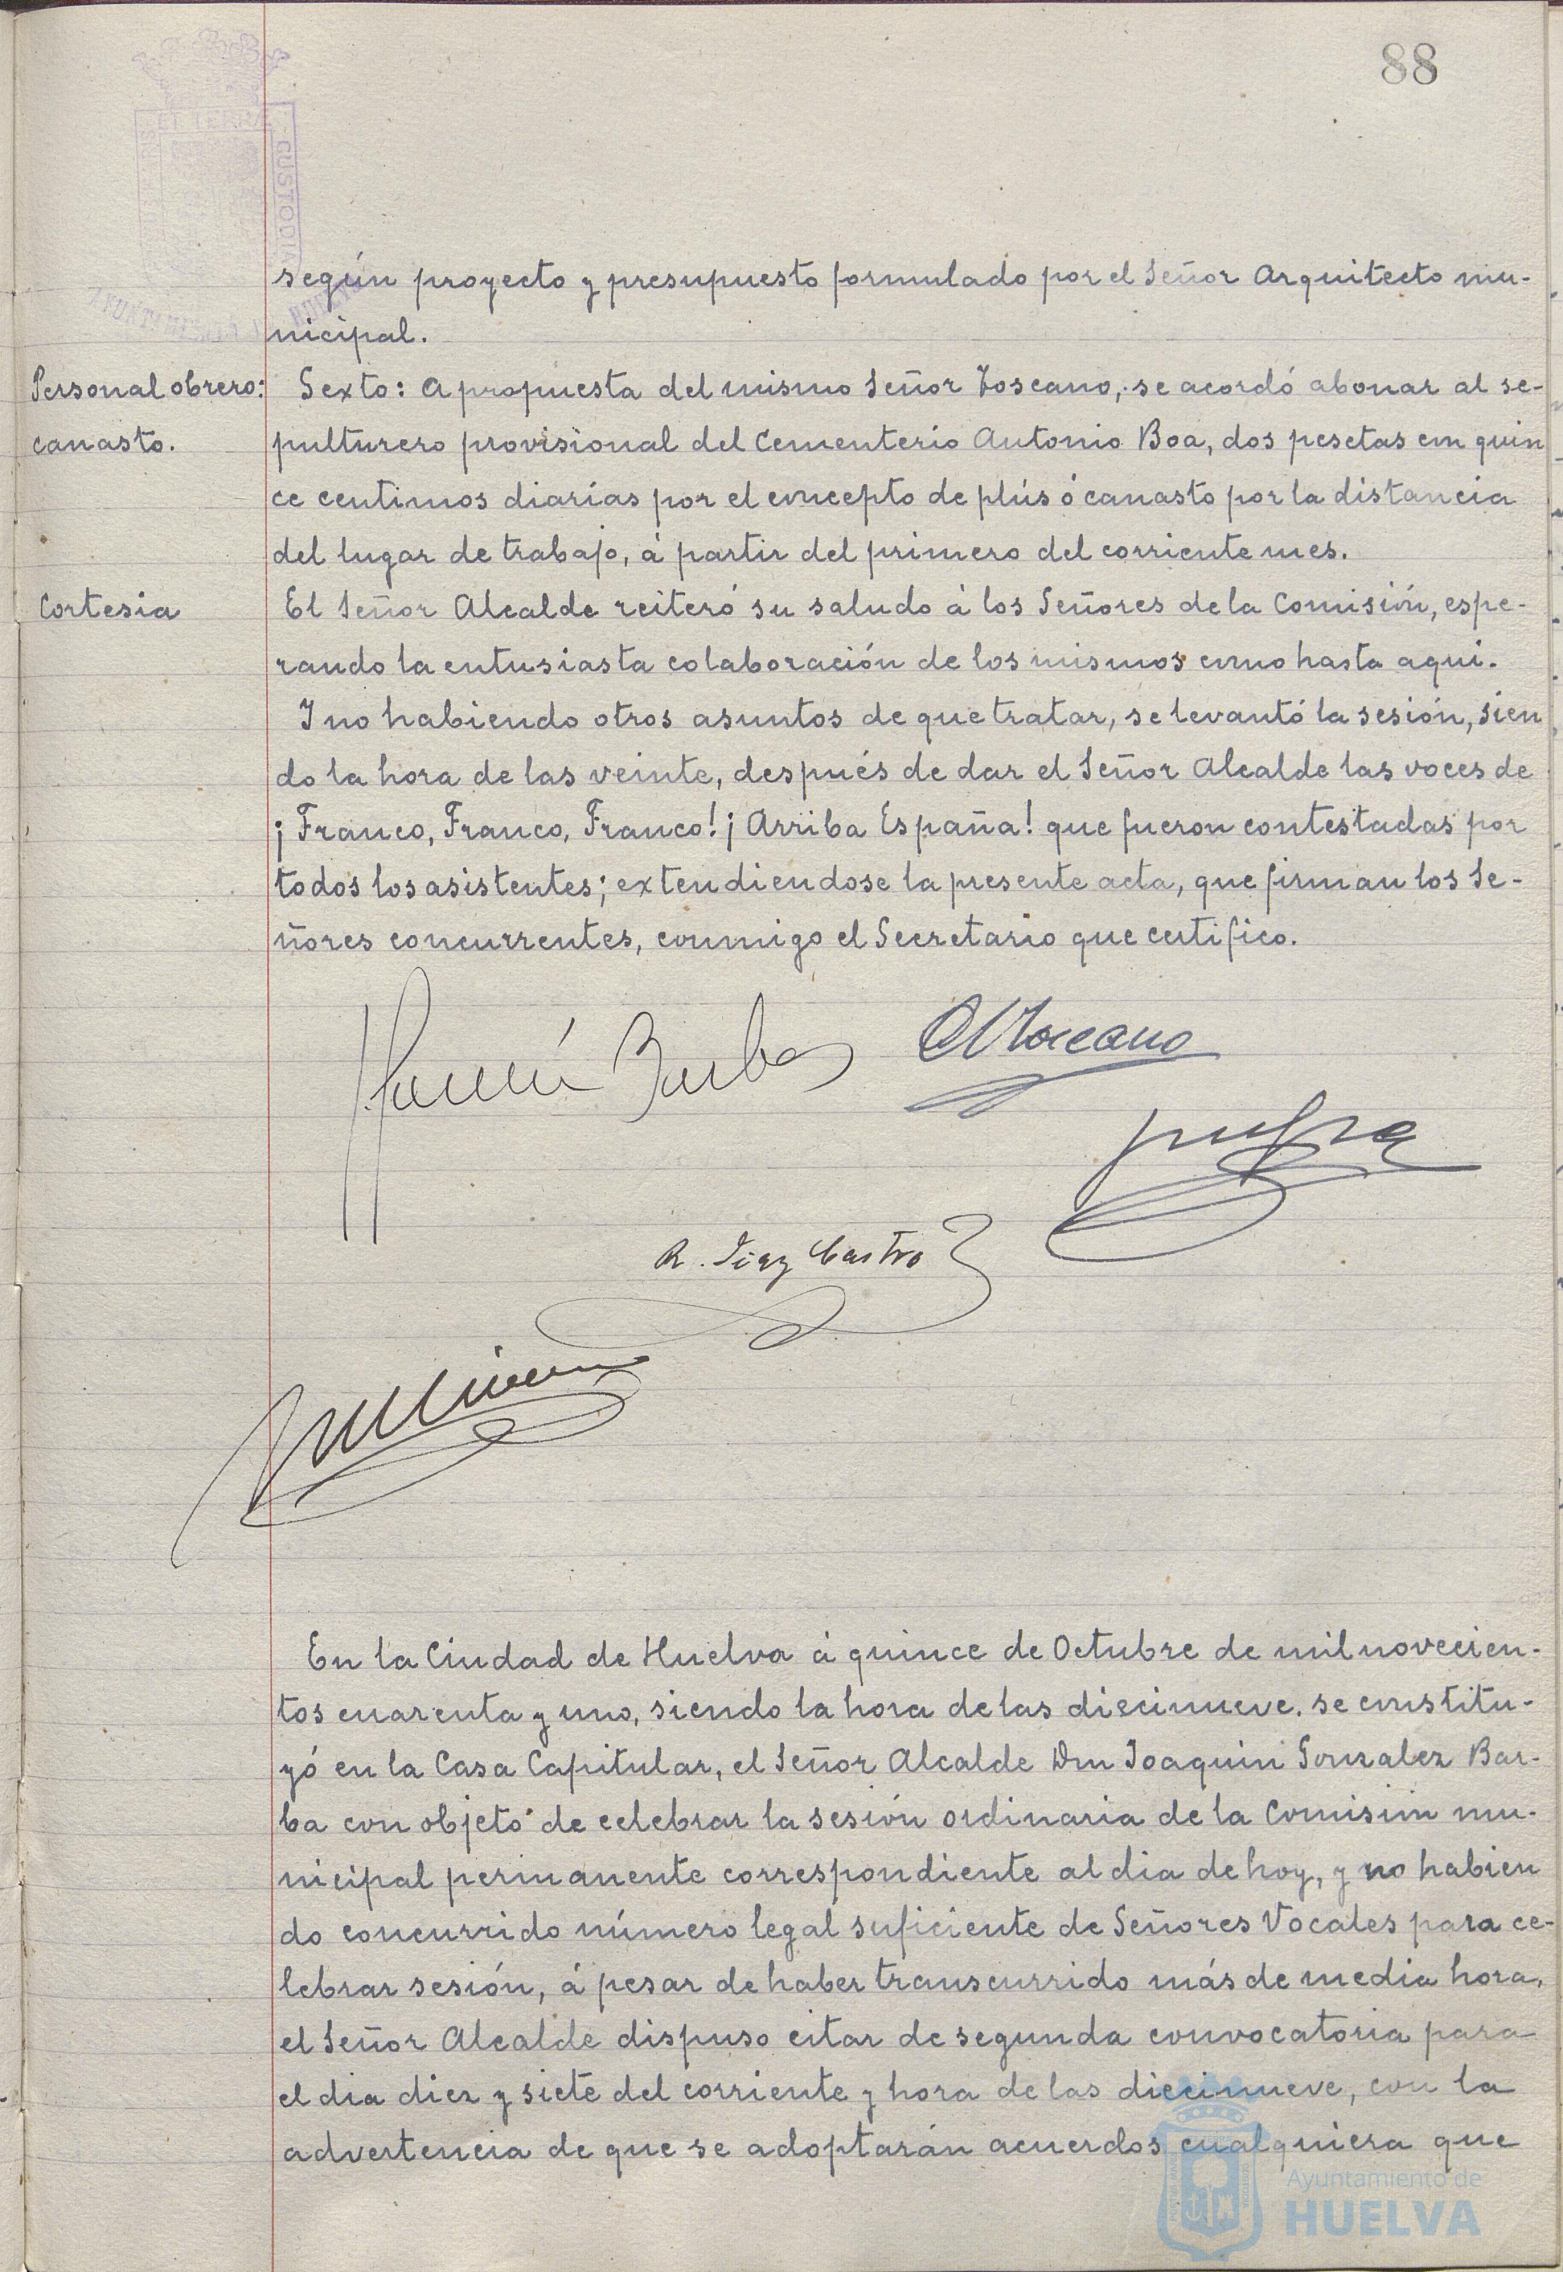 88
según proyecto y presupuesto formulado por el Señor Arquitecto mu-
nicipal.
Personal obrero:
canasto.
Sexto: A propuesta del mismo Señor Toscano, se acordó abonar al se-
pulturero provisional del Cementerio Antonio Boa, dos pesetas con quin
ce centimos diarias por el concepto de plús ó canasto por la distancia
del lugar de trabajo, á partir del primero del corriente mes.
Cortesia
El Señor Alcalde reiteró su saludo á los Señores de la Comisión, espe-
rando la entusiasta colaboración de los mismos como hasta aqui.
Y no habiendo otros asuntos de que tratar, se levantó la sesión, sien
do la hora de las veinte, después de dar el Señor Alcalde las voces de
¡Franco, Franco, Franco! ¡Arriba España! que fueron contestadas por
todos los asistentes; extendiendose la presente acta, que firman los Se-
ñores concurrentes, conmigo el Secretario que certifico.
Barba
Toscano
R. Diaz Castro
En la Ciudad de Huelva á quince de Octubre de mil novecien-
tos cuarenta y uno, siendo la hora de las diecinueve, se constitu-
yó en la Casa Capitular, el Señor Alcalde Don Joaquin Gonzalez Bar-
ba con objeto de celebrar la sesión ordinaria de la Comisión mu-
nicipal permanente correspondiente al dia de hoy, y no habien
do concurrido número legal suficiente de Señores Vocales para ce-
lebrar sesión, á pesar de haber transcurrido más de media hora,
el Señor Alcalde dispuso citar de segunda convocatoria para
el dia diez y siete del corriente y hora de las diecinueve, con la
advertencia de que se adoptarán acuerdos cualquiera que
Ayuntamiento de
HUELVA